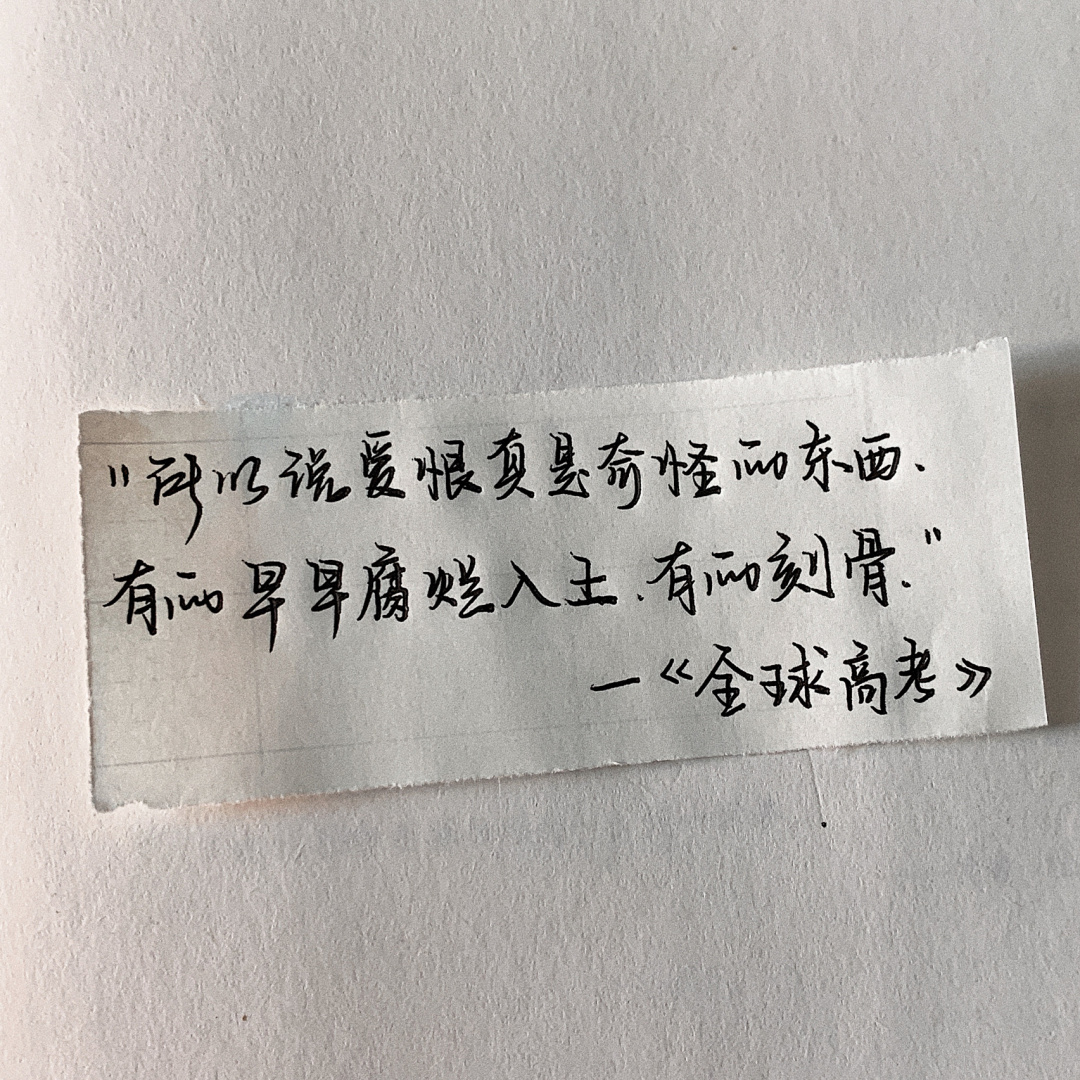 "所以说爱恨真是奇怪的东西.
有的早早腐烂入土.有的刻骨."
—《全球高考》